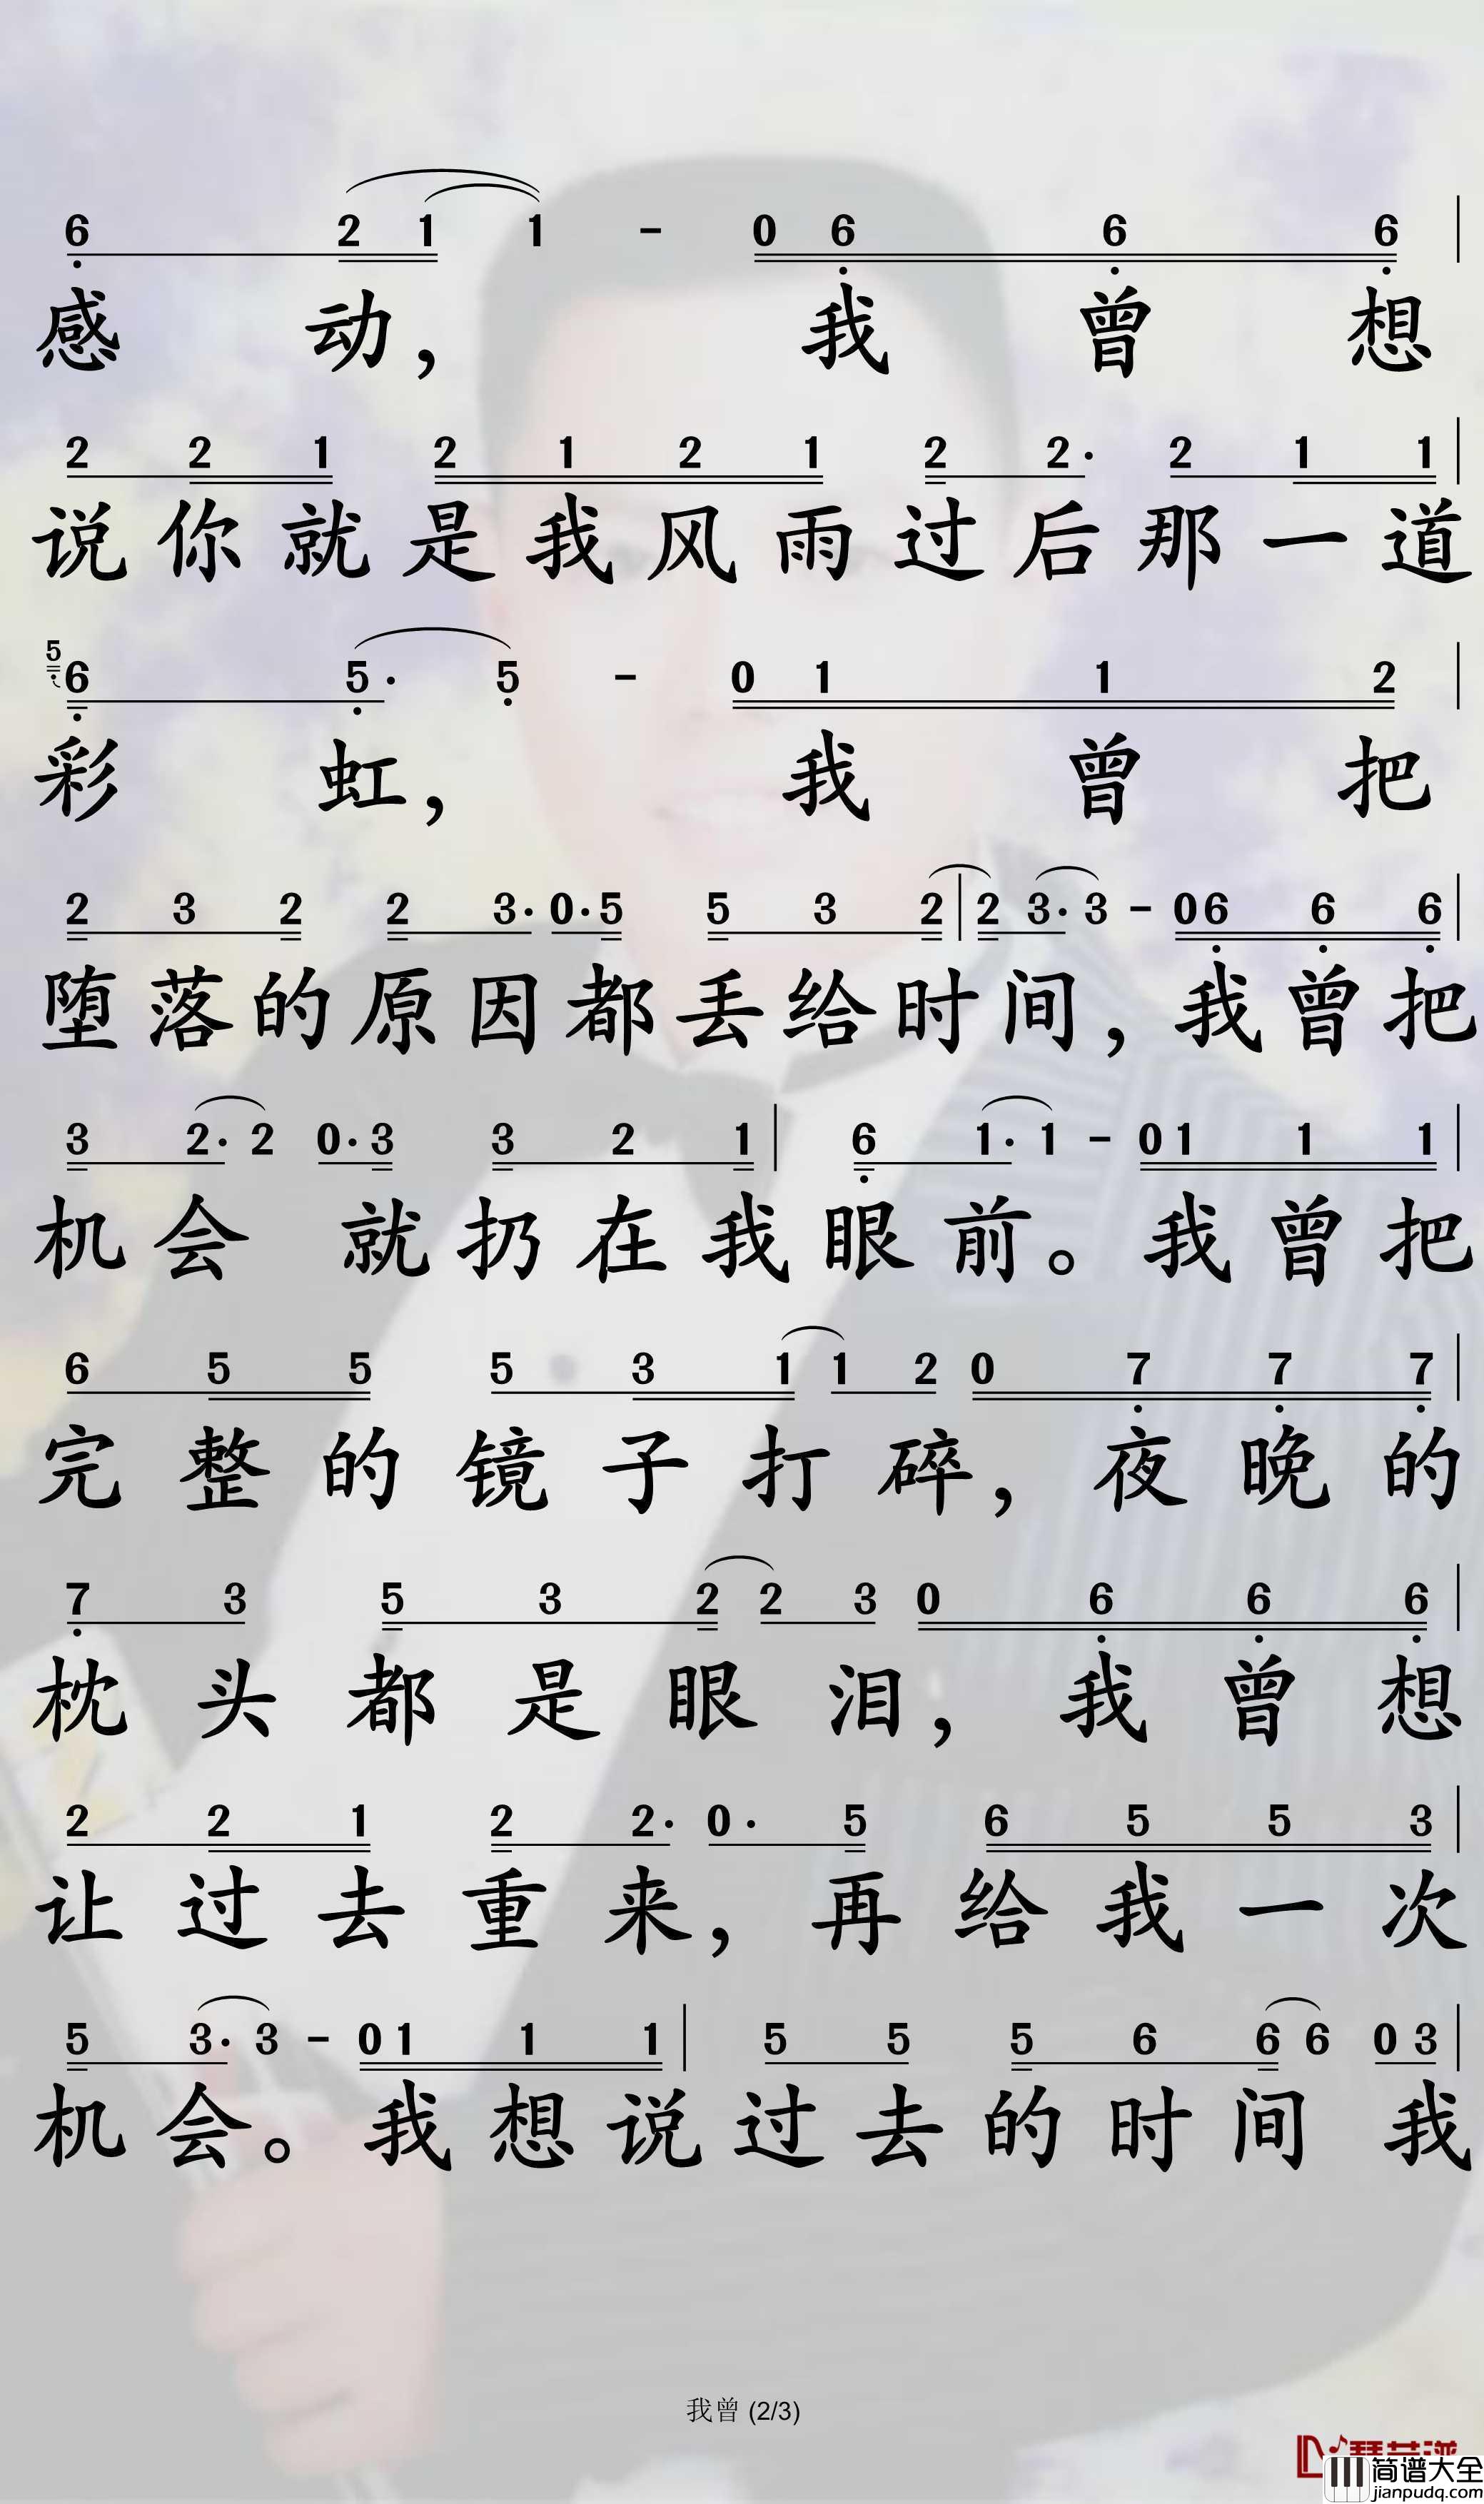 6 2 1 1 - 0 6 6 6
感动， 我曾想
2 2 1 2 1 2 1 2 2· 2 1 1
说你就是我风雨过后那一道
5 6 5· 5 - 0 1 1 2
彩虹， 我曾把
2 3 2 2 3· 0· 5 5 3 2 | 2 3· 3 - 0 6 6 6
堕落的原因都丢给时间，我曾把
3 2· 2 0· 3 3 2 1 | 6 1· 1 - 0 1 1 1
机会 就扔在我眼前。我曾把
6 5 5 5 3 1 1 2 0 7 7 7
完整的镜子打碎，夜晚的
7 3 5 3 2 2 3 0 6 6 6
枕头都是眼泪，我曾想
2 2 1 2 2· 0· 5 6 5 5 3
让过去重来，再给我一次
5 3· 3 - 0 1 1 1 | 5 5 5 6 6 6 0 3
机会。我想说过去的时间 我
我曾 (2/3)
简谱大全
jianpudq.com